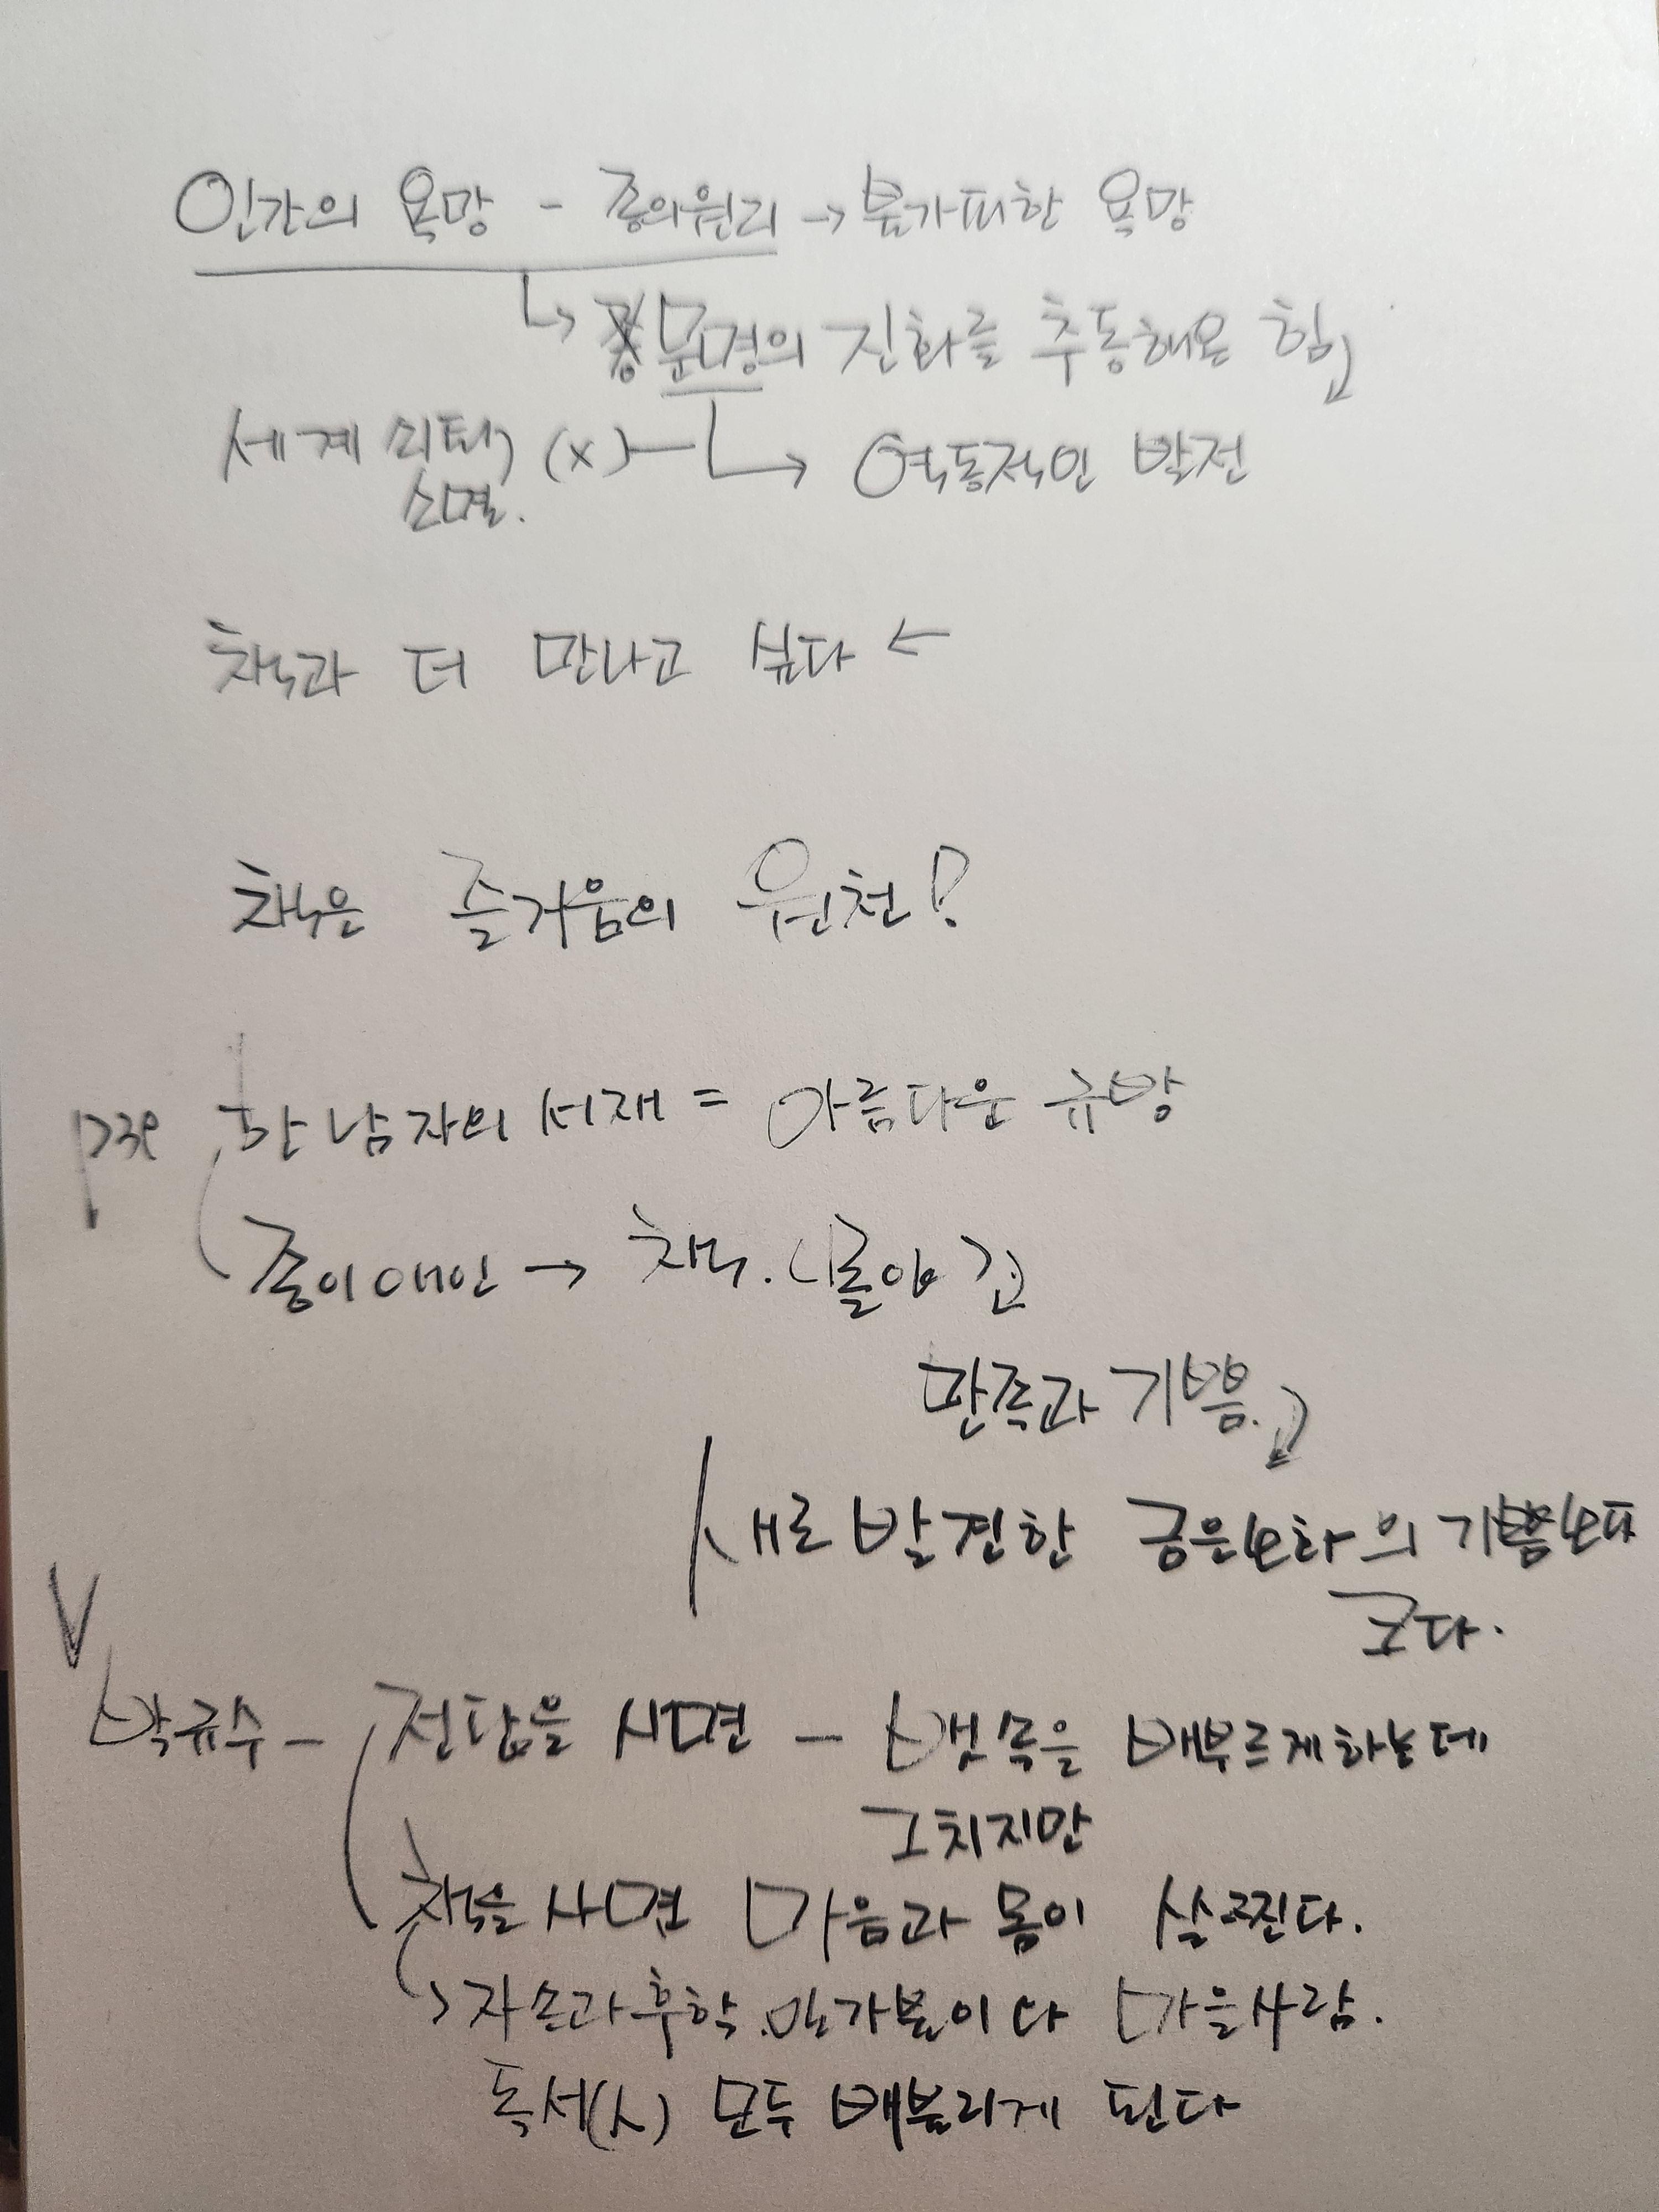 인간의 욕망 - 종의원리 → 불가피한 욕망
↳ 문명의 진화를 추동해온 힘
세계 쇠퇴, (x) → 역동적인 발전
소멸.
책과 더 만나고 싶다 ←
책은 즐거움의 원천!
한 남자의 서재 = 아름다운 규방
종이애인 → 책.
만족과 기쁨.
새로 발견한 금은보화의 기쁨보다
크다.
박규수 - 전답을 사면 - 뱃속을 배부르게하는데
그치지만
책을 사면 마음과 몸이 살찐다.
→ 자손과 후학, 일가붙이다 마을사람.
독서(人) 모두 배불리게 된다